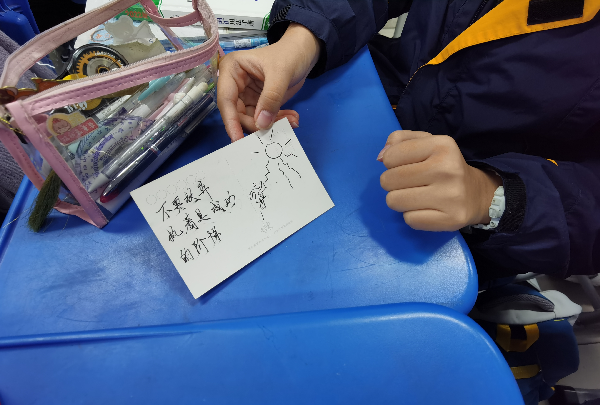 不要放弃
执着是成功
的阶梯